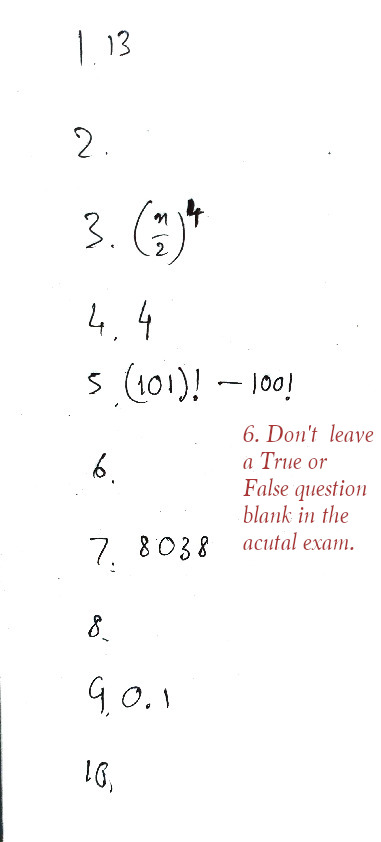 1. 13
2.
3. (n/2)^4
4. 4
5. (101)! – 100!
6. Don't leave
a True or
False question
blank in the
acutal exam.
6.
7. 8038
8.
9. 0.1
10.